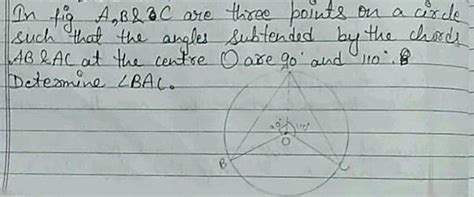 In fig A, B & C are three points on a circle
such that the angles subtended by the chords
AB & AC at the centre O are 90° and 110°.
Determine ∠BAC.
A
90° 110°
O
B C